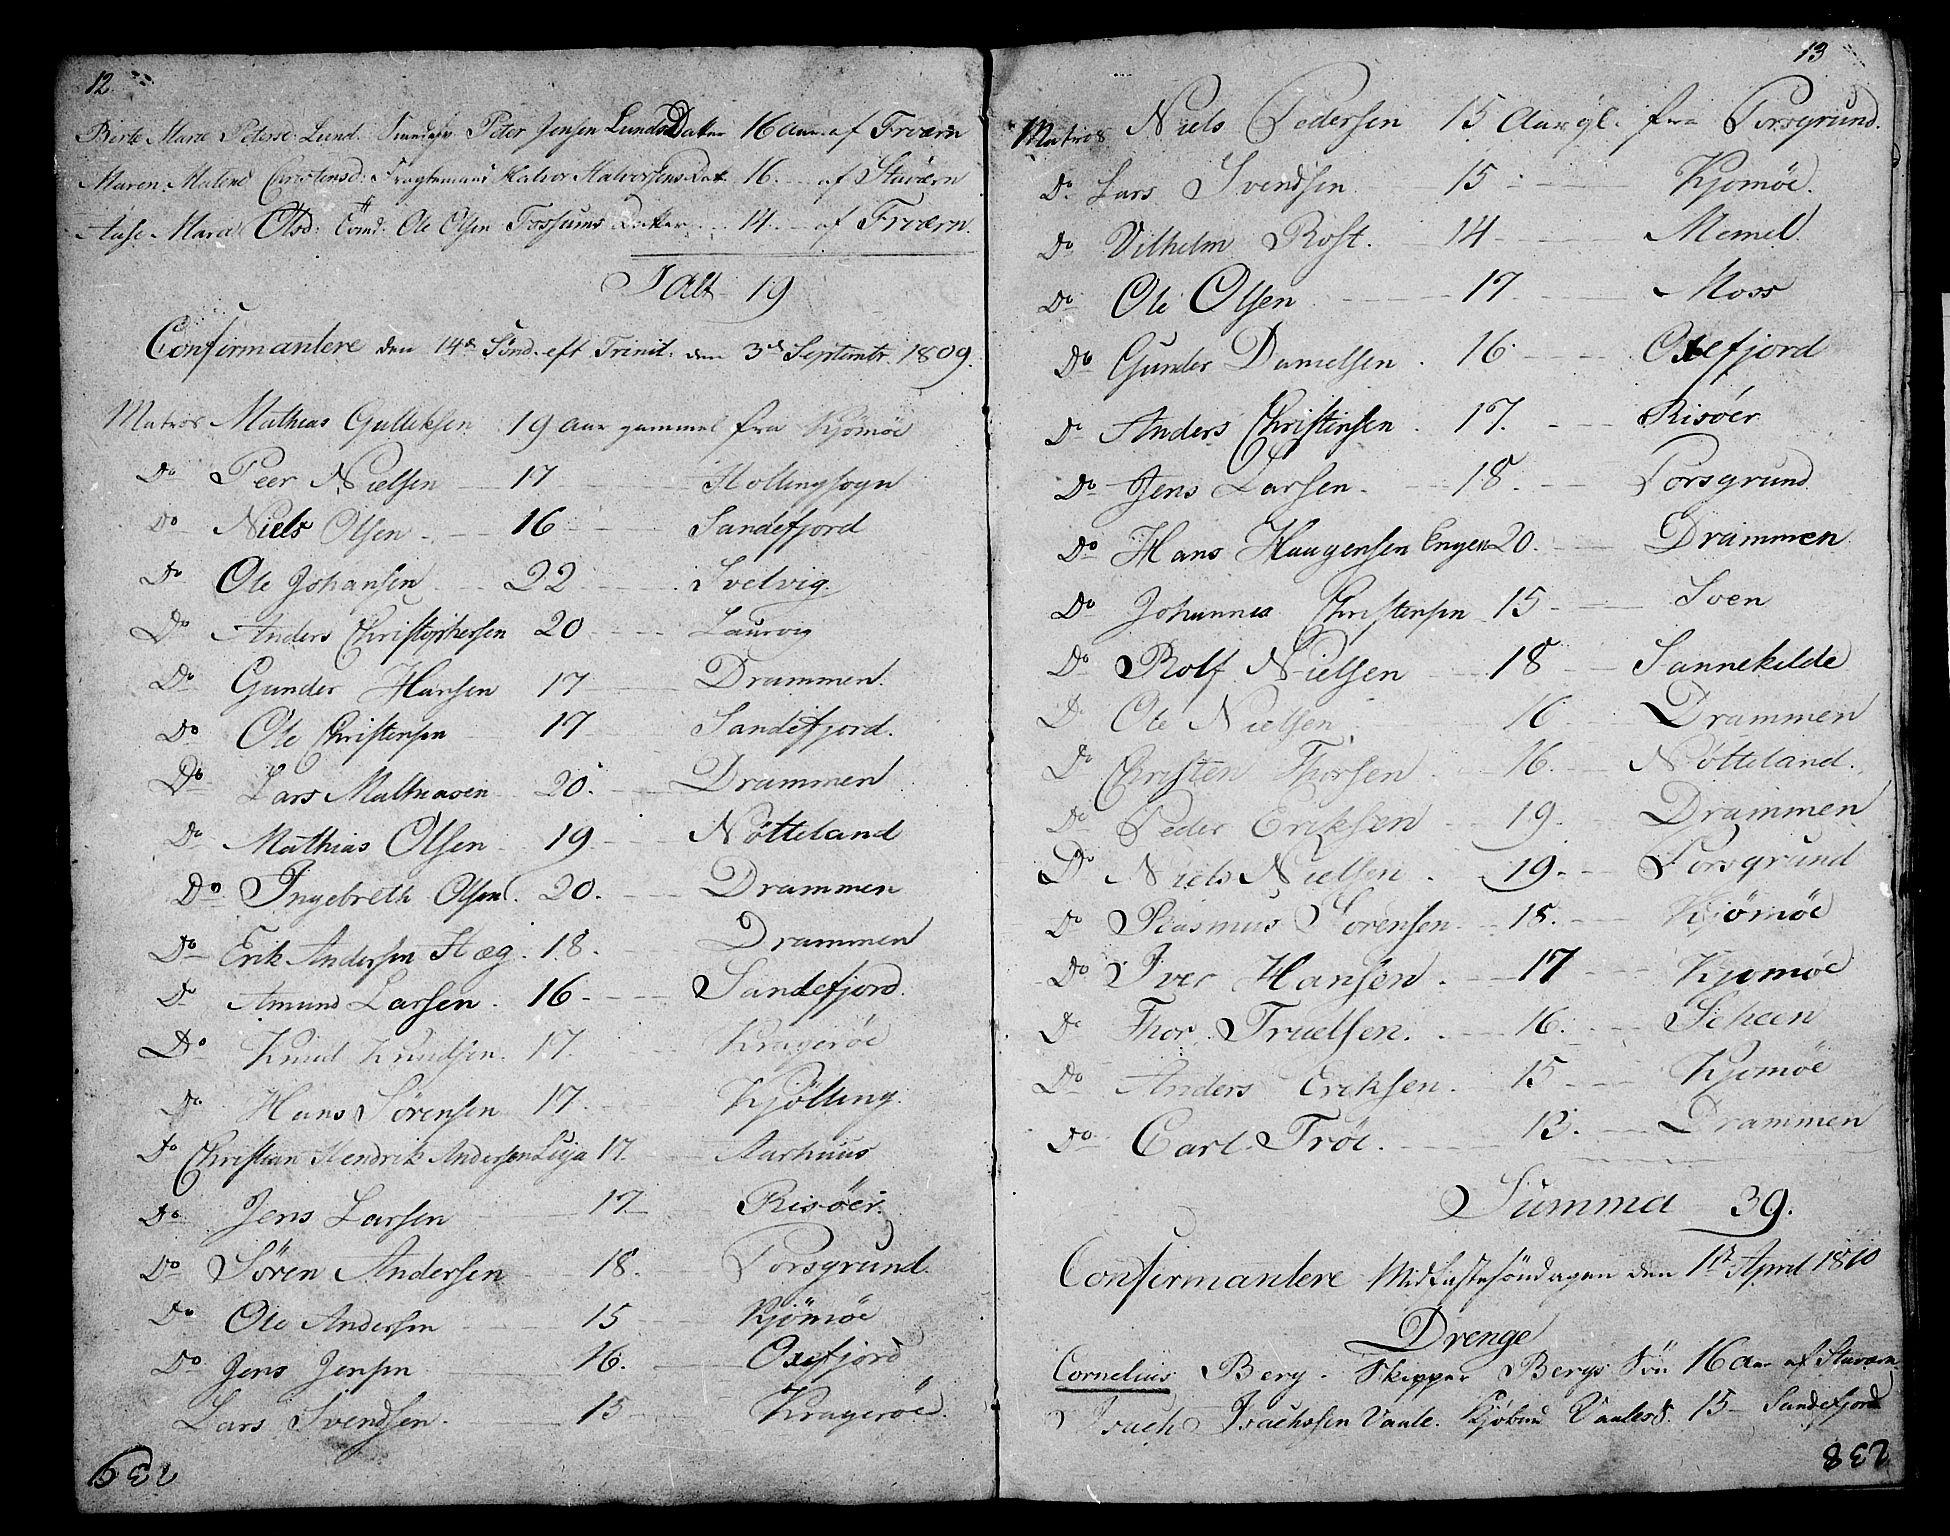 12.
Birte Marie Peters: Lund. Peter Jensen Lunds Datter 16 Aar af Frværn
Maren Malene Christensd: Fragtemand Halvor Halvorsens Dat. 16. af Staværn
Aase Maria Olsd: Tømd: Ole Olsen Fossums Datter 14. af Frværn.
I Alt 19
Confirmantere den 14de Sönd. eft Trinit. den 3de Septembr. 1809.
Matros Mathias Gulliksen 19 Aar gammel fra Kjömöe
Do Peer Nielsen 17 Hollingsogn
Do Niels Olsen 16 Sandefjord
Do Ole Johansen 22 Svelvig.
Do Anders Christophersen 20 Laurvig
Do Gunder Hansen 17 Drammen.
Do Ole Christensen 17 Sandefjord.
Do Lars Mathiasen 20. Drammen
Do Mathias Olsen 19. Nötteland
Do Ingebreth Olsen. 20. Drammen
Do Erik Andersen Hæg. 18. Drammen
Do Amund Larsen. 16. Sandefjord.
Do Knud Knudsen. 17. Krageröe
Do Hans Sörensen 17. Kjölling.
Do Christian Hendrik Andersen 17. Aarhuus
Do Jens Larsen 17 Risöer.
Do Sören Andersen 18. Porsgrund.
Do Ole Andersen 15 Kjömöe
Do Jens Jensen 16. Oxefjord
Lars Svendsen. 15 Krageröe.
239
13
Matros Niels Pedersen 15 Aar gl. fra Porsgrund.
Do Lars Svendsen 15 Kjomöe.
Do Vilhelm Rost. 14 Memel.
Do Ole Olsen 17. Moss
Do Gunder Danielsen. 16. Oxefjord
Do Anders Christensen. 17. Risöer
Do Jens Larsen. 18. Porsgrund.
Do Hans Haagensen Engen 20. Drammen.
Do Johannes Christensen 15 Sven
Do Rolf Nielsen 18 Sannekilde
Do Ole Nielsen. 16. Drammen
Do Christen Thorsen. 16. Nötteland.
Do Peder Eriksen 19. Drammen
Do Niels Nielsen. 19. Porsgrund
Do Rasmus Sorensen. 18. Kjömöe
Do Iver Hansen. 17 Kjomöe
Do Thor Truelsen. 16. Scheen
Do Anders Eriksen. 15 Kjomöe
Do Carl Tröe. 13. Drammen
Summa 39.
Confirmantere Midfastesöndagen den 1ste April 1810
Drenge
Cornelius Berg. Skipper Bergs Sön 16 Aar af Staværn
Isach Isachssen Vaale. Kjöbmd Vaales S. 15 Sandefjord
238